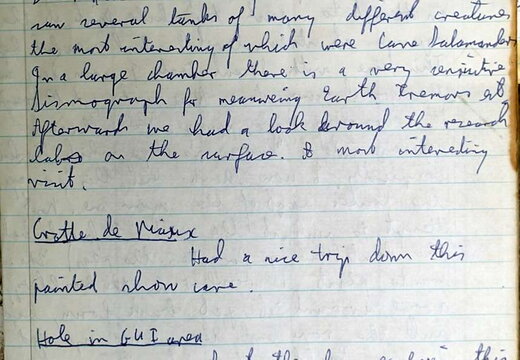 saw several tanks of many different creatures
the most interesting of which were Cave Salamanders
In a large chamber there is a very sensitive
Sismograph for measureing Earth tremors etc
Afterwards we had a look around the research
labs on the surface. A most interesting
visit.
Grotte de Niaux
Had a nice trip down this
painted show cave.
Hole in GUI area
this